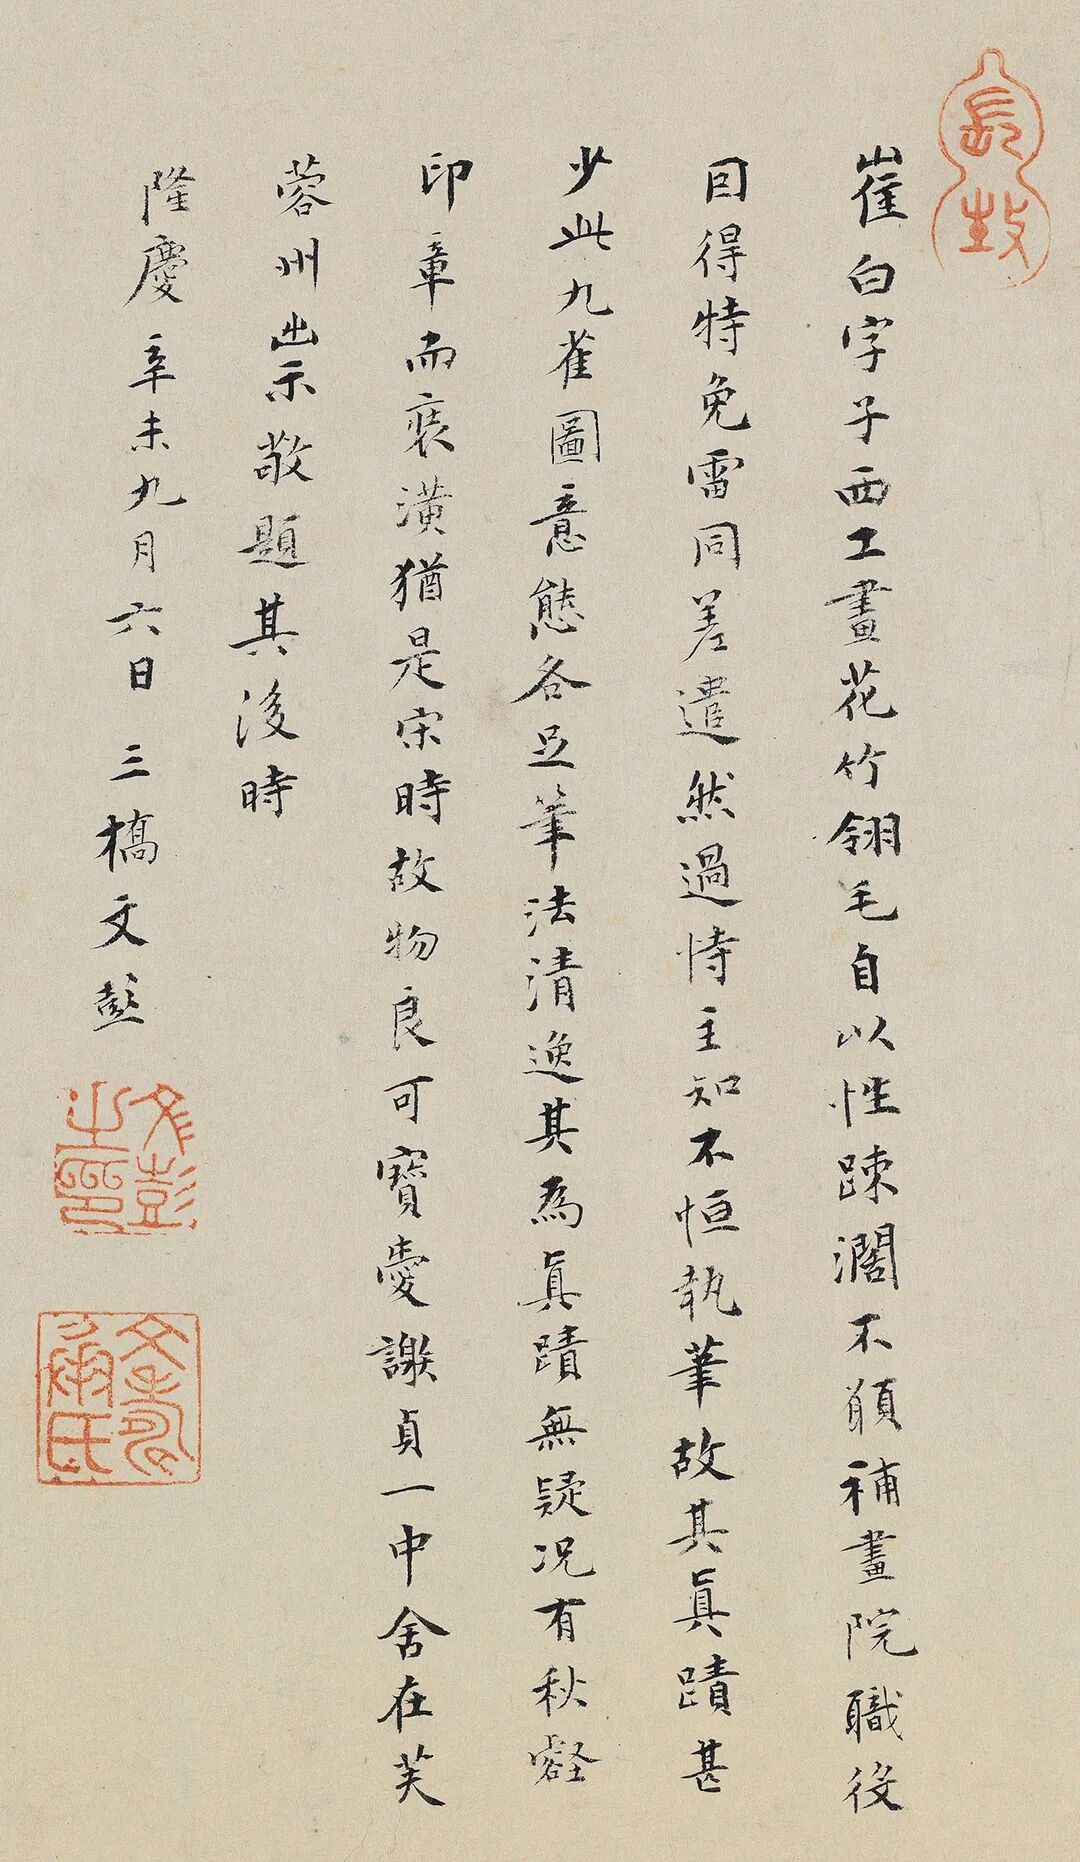 崔白字子西工畫花竹翎毛自以性踈濶不願補畫院職役
囙得特免雷同差遣然過恃主知不恒執筆故其眞蹟甚
少此九雀圖意態各足筆法清逸其為眞蹟無疑况有秋壑
印章而裱潢猶是宋時故物良可寶愛謝貞一中舍在芙
蓉州出示敬題其後時
隆慶辛未九月六日三橋文彭
文彭之印
文壽承氏